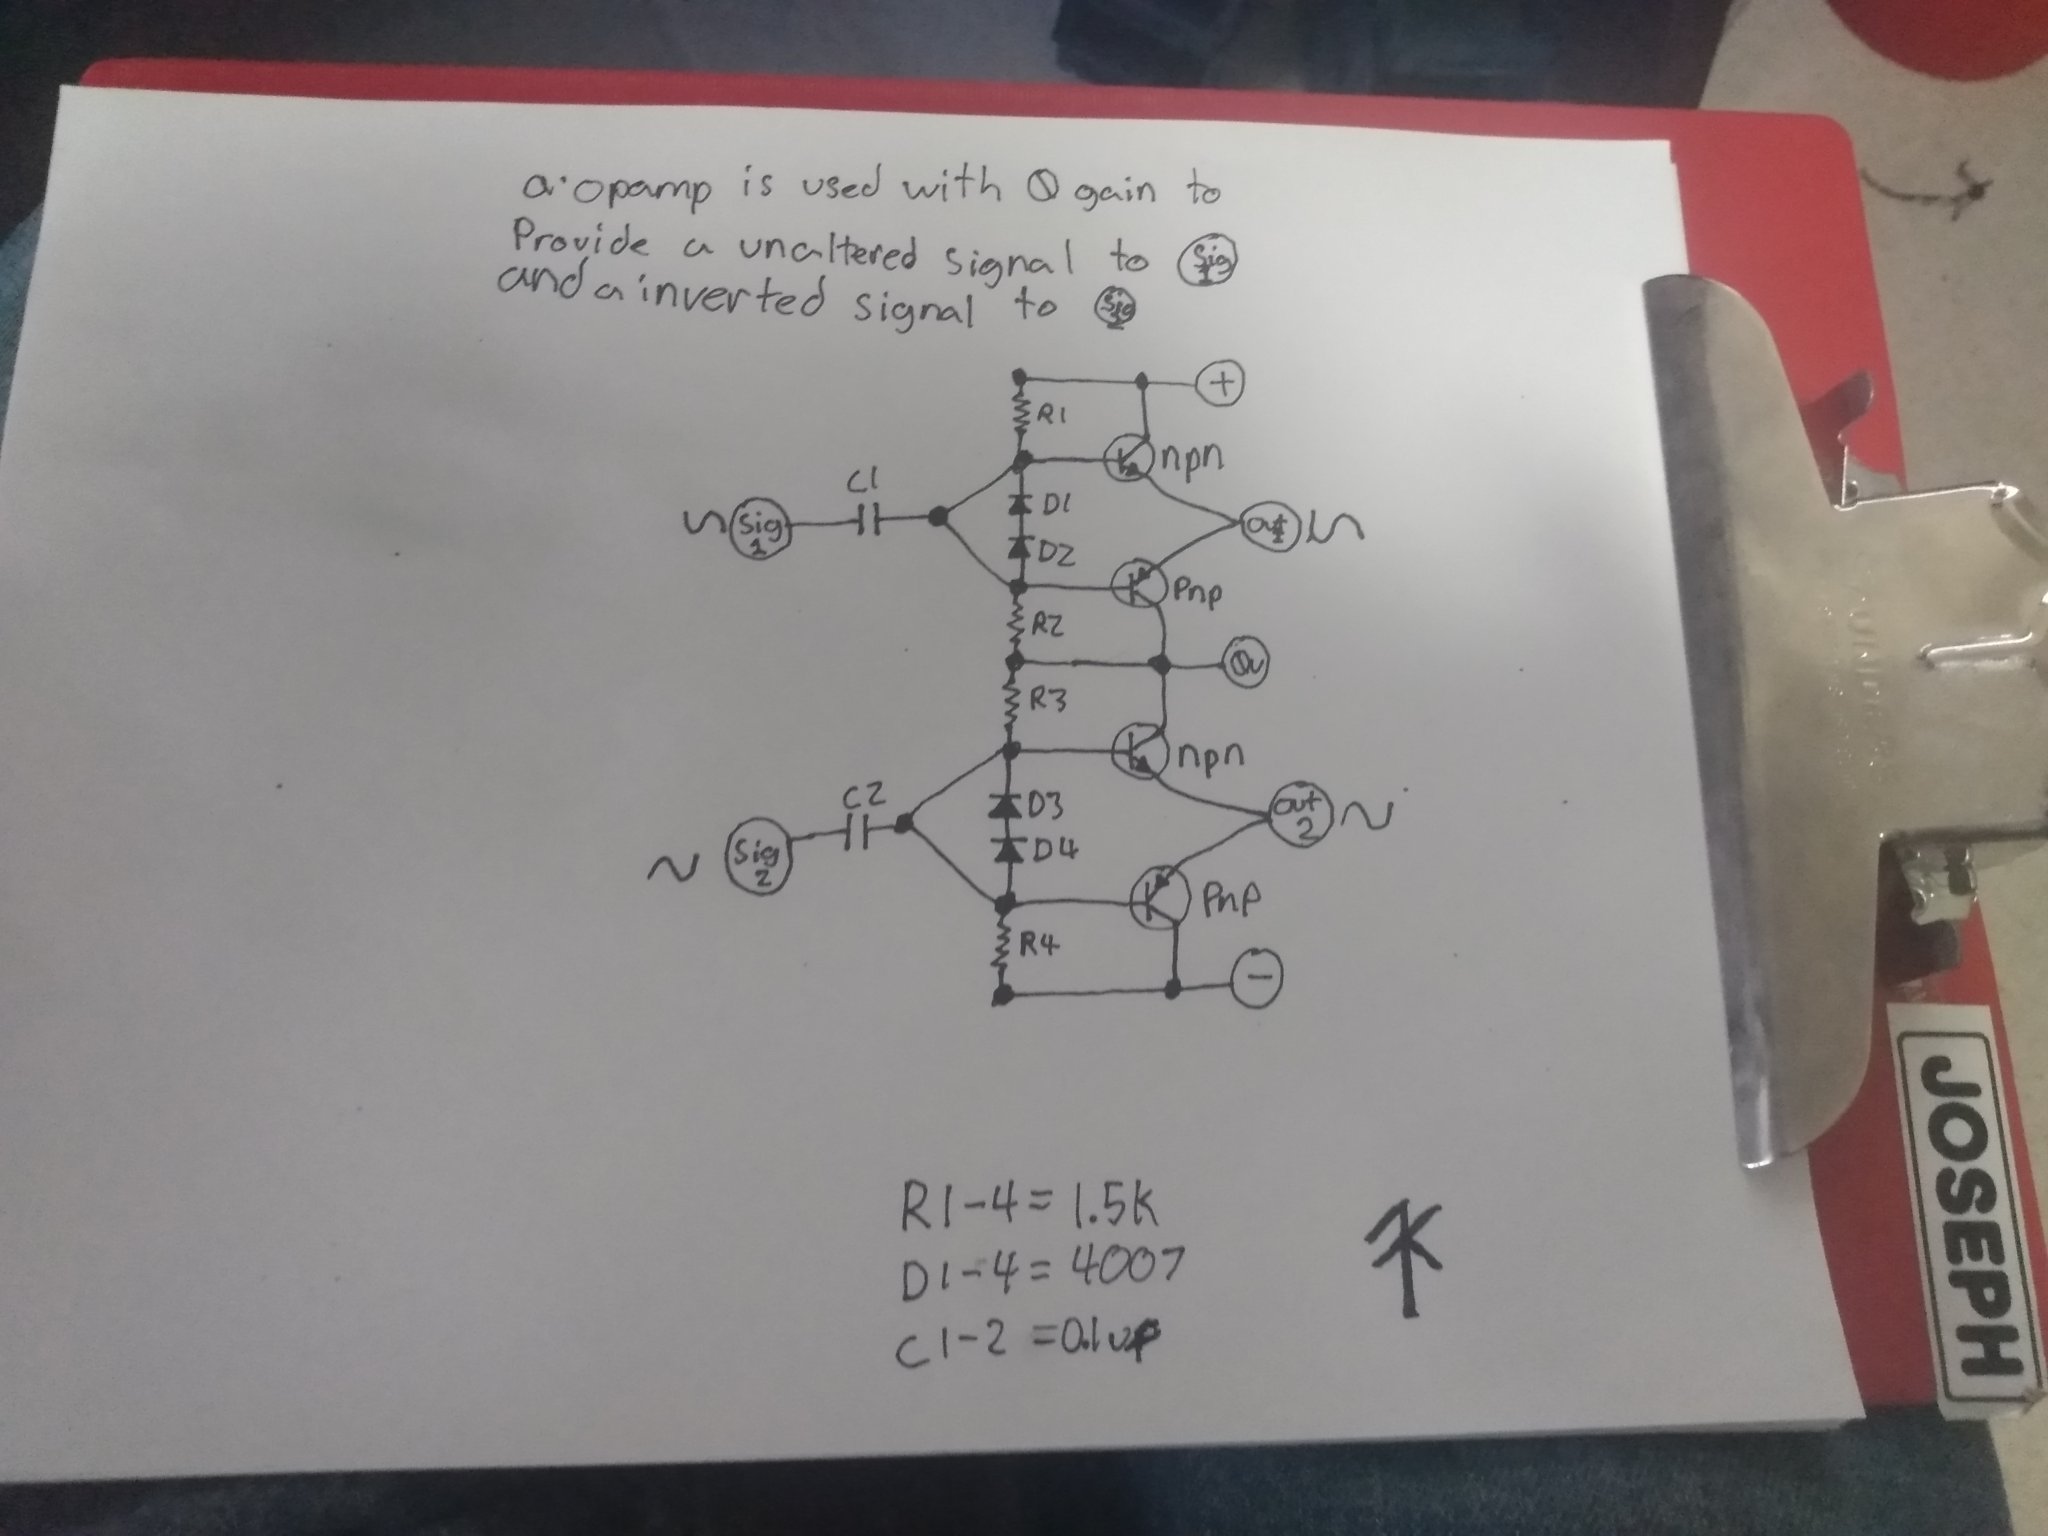 a opamp is used with 0 gain to
Provide a unaltered signal to Sig 1
and a inverted signal to Sig 2
+
R1
npn
C1
D1
Sig 1
out 1
D2
Pnp
R2
0v
R3
npn
C2
D3
out 2
Sig 2
D4
Pnp
R4
-
R1-4 = 1.5k
D1-4 = 4007
C1-2 = 0.1uf
JOSEPH